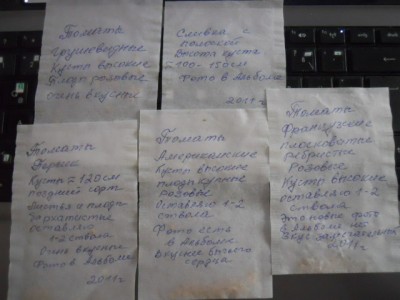 Томаты
грушевидные
Кусты высокие
Плод розовые
очень вкусные
Сливка с
полоской
Высота куста
100-150см
Фото в Альбоме
2011г
Томаты
Кусты = 120см
поздний сорт
Листва и плоды
оставляю
1-2 ствола
Очень вкусные
Фото в Альбоме
2011г
Томаты
Американские
Кусты высокие
плоды крупные
розовые
Оставляю 1-2
ствола
Фото есть
в Альбоме
Вкуснее бычьего
сердца
Томаты
Французские
плосковатые
ребристые
Розовые
Кусты высокие
оставляю 1-2
ствола
Это новые фото
в Альбоме но
2011г